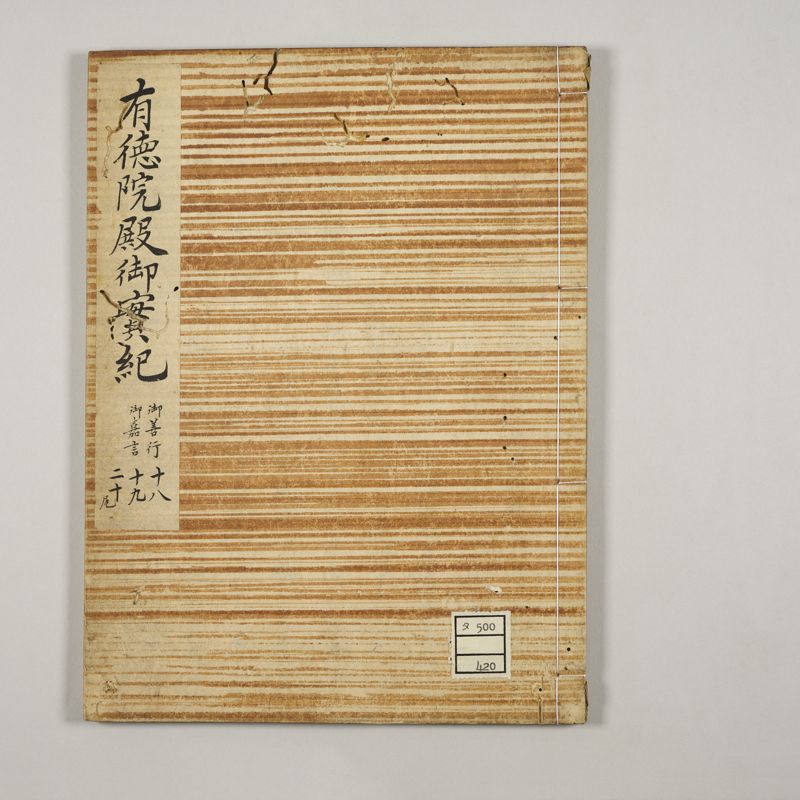 有徳院殿御實紀
御善行
御嘉言
十八
十九
二十尾
タ 500
420